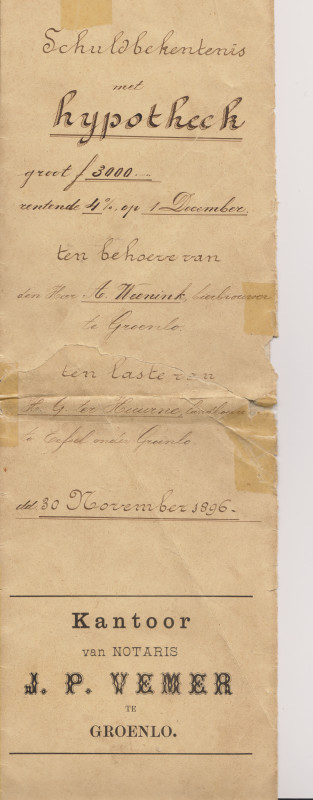 Schuldbekentenis
met
hypotheek
groot f 3000....
rentende 4% op 1 December.
ten behoeve van
den Heer A. Weenink, bierbrouwer
te Groenlo.
ten laste van
G. ter Haerne, landbouwer
te Eefsel onder Groenlo.
dd. 30 November 1896.
Kantoor
van NOTARIS
J. P. VEMER
TE
GROENLO.